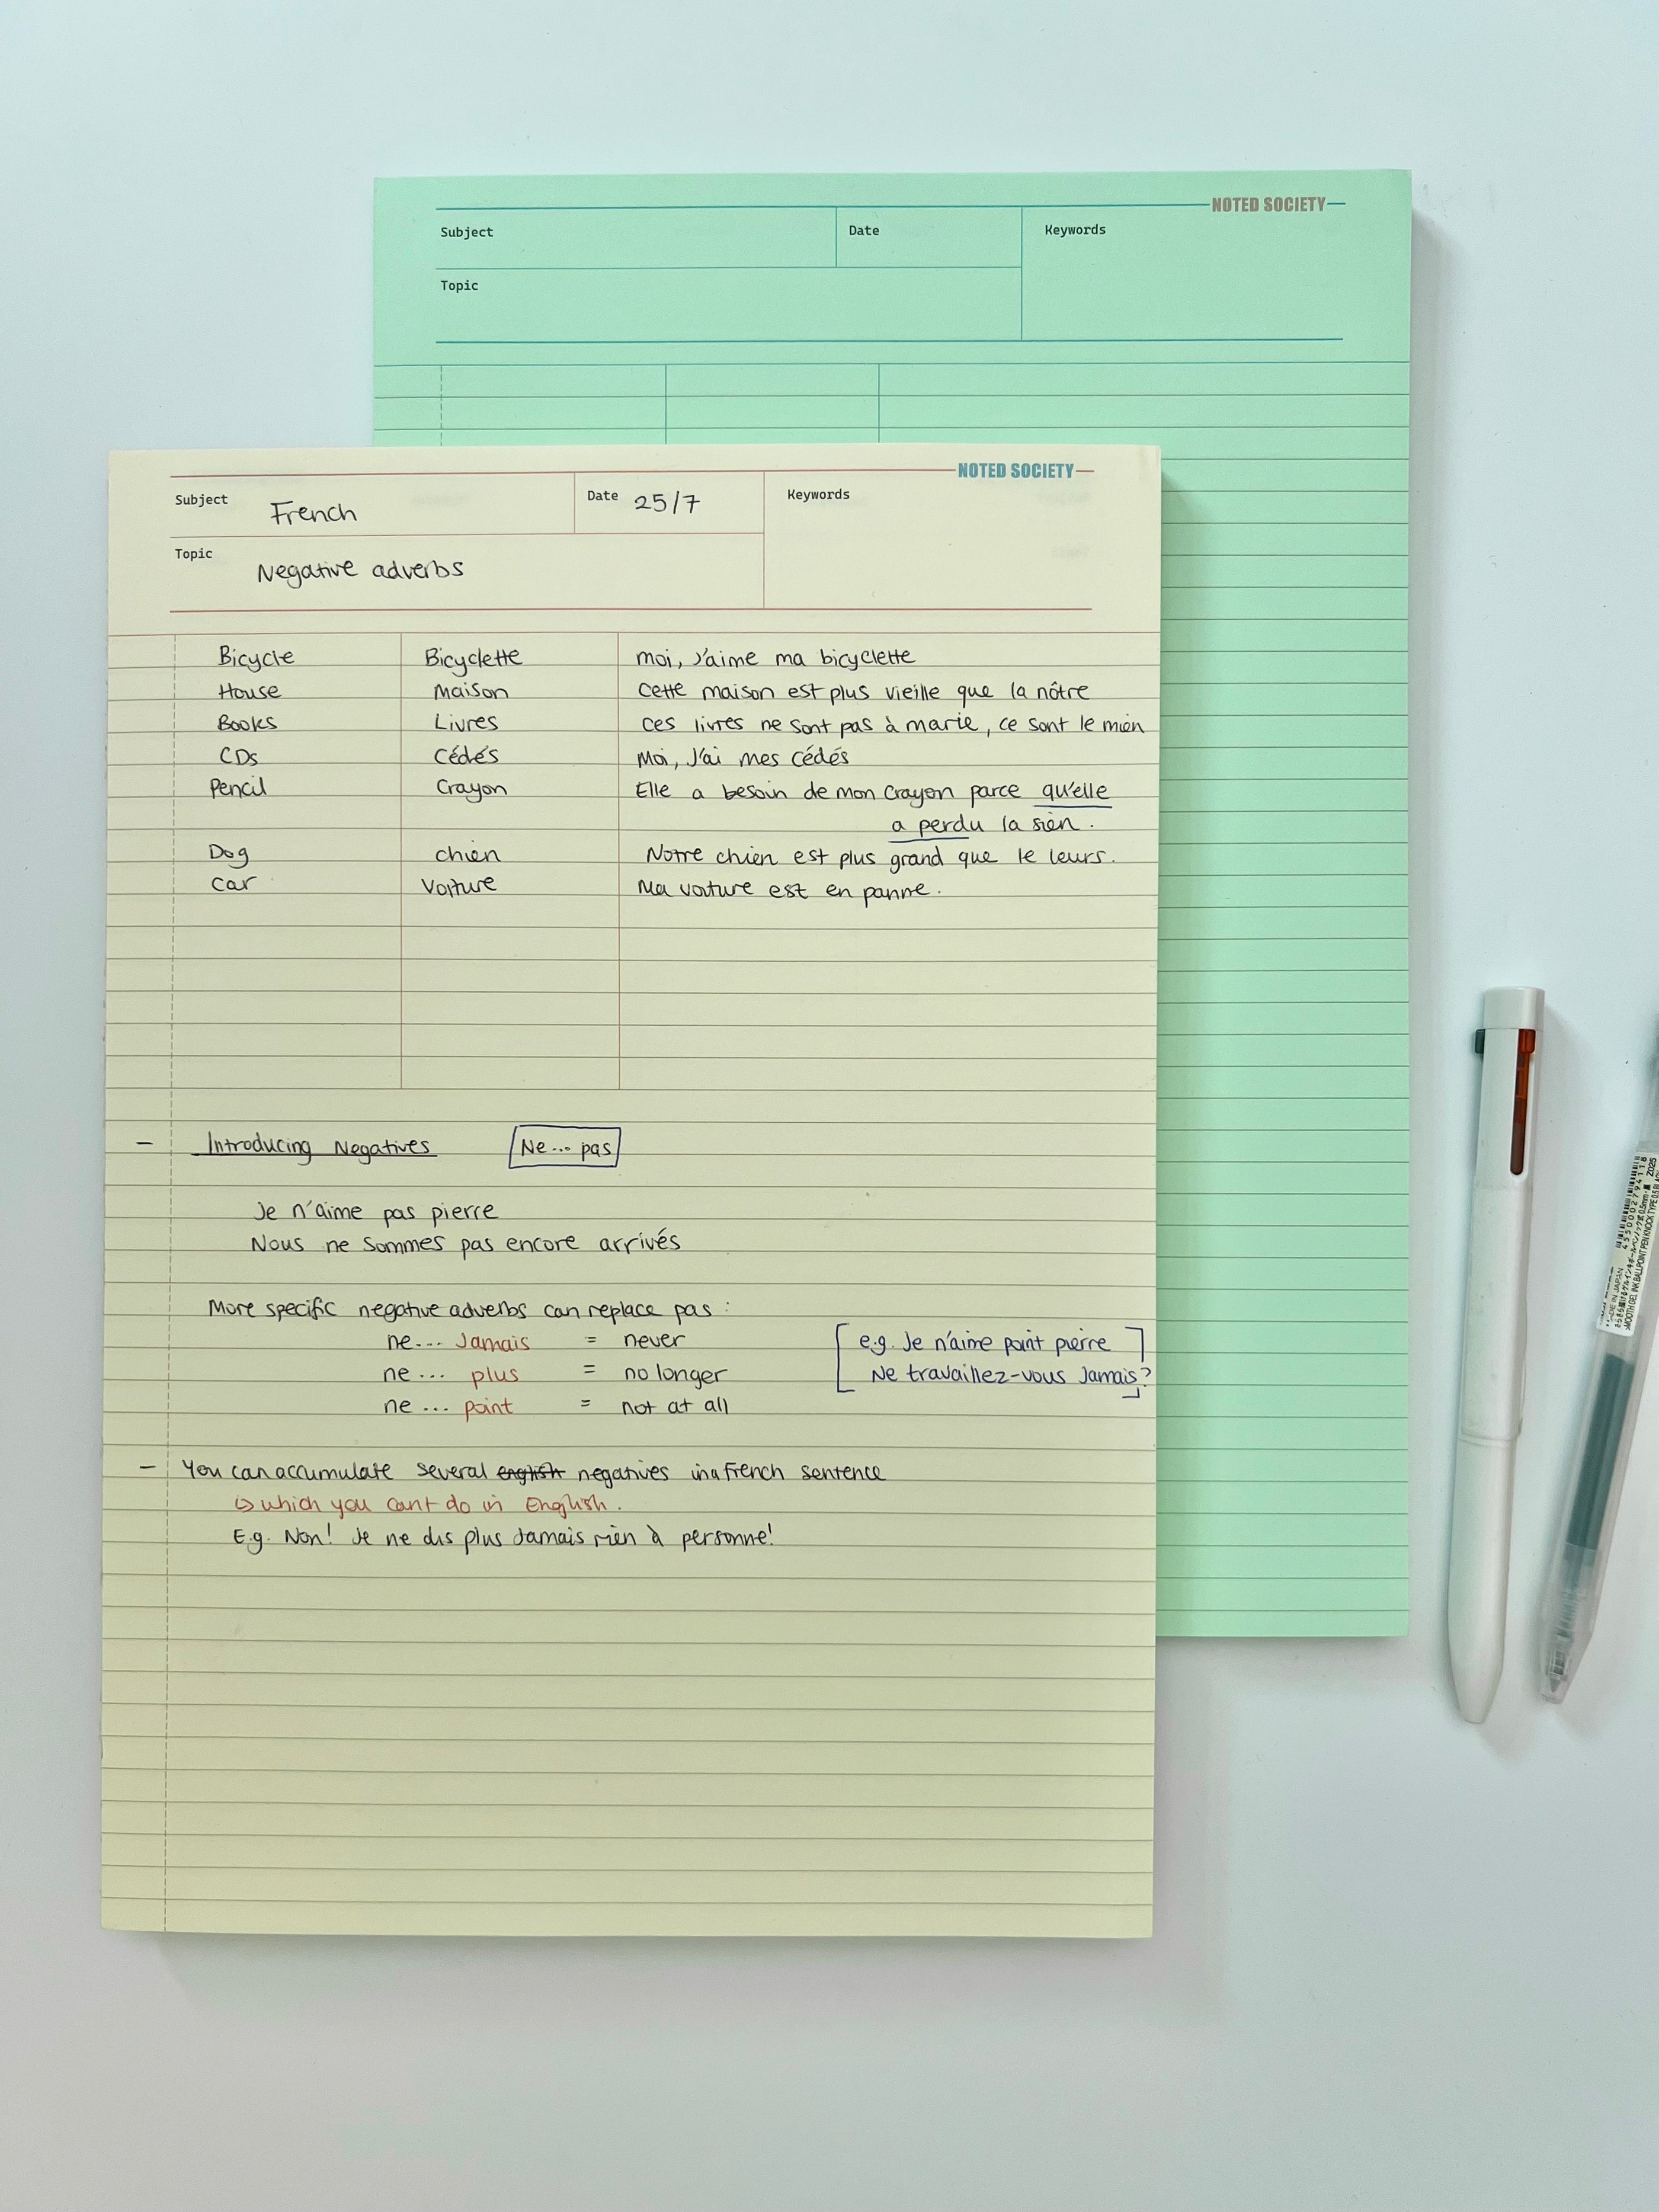 NOTED SOCIETY
Subject Date Keywords
Topic
NOTED SOCIETY
Subject French Date 25/7 Keywords
Topic Negative adverbs
Bicycle Bicyclette moi, J'aime ma bicyclette
House Maison Cette maison est plus vieille que la nôtre
Books Livres Ces livres ne sont pas à marie, ce sont le mien
CDs Cédés Moi, J'ai mes cédés
Pencil Crayon Elle a besoin de mon crayon parce qu'elle
a perdu la sien.
Dog chien Notre chien est plus grand que le leurs.
Car Voiture Ma voiture est en panne.
- Introducing Negatives Ne... pas
Je n'aime pas pierre
Nous ne sommes pas encore arrivés
More specific negative adverbs can replace pas:
ne... Jamais = never e.g. Je n'aime point pierre
ne... plus = no longer Ne travaillez-vous Jamais?
ne... point = not at all
- You can accumulate several english negatives in a French sentence
↳ which you cant do in English.
E.g. Non! Je ne dis plus Jamais rien à personne!
MADE IN JAPAN
SMOOTH GEL INK BALLPOINT PEN KNOCK TYPE 0.5 BLACK